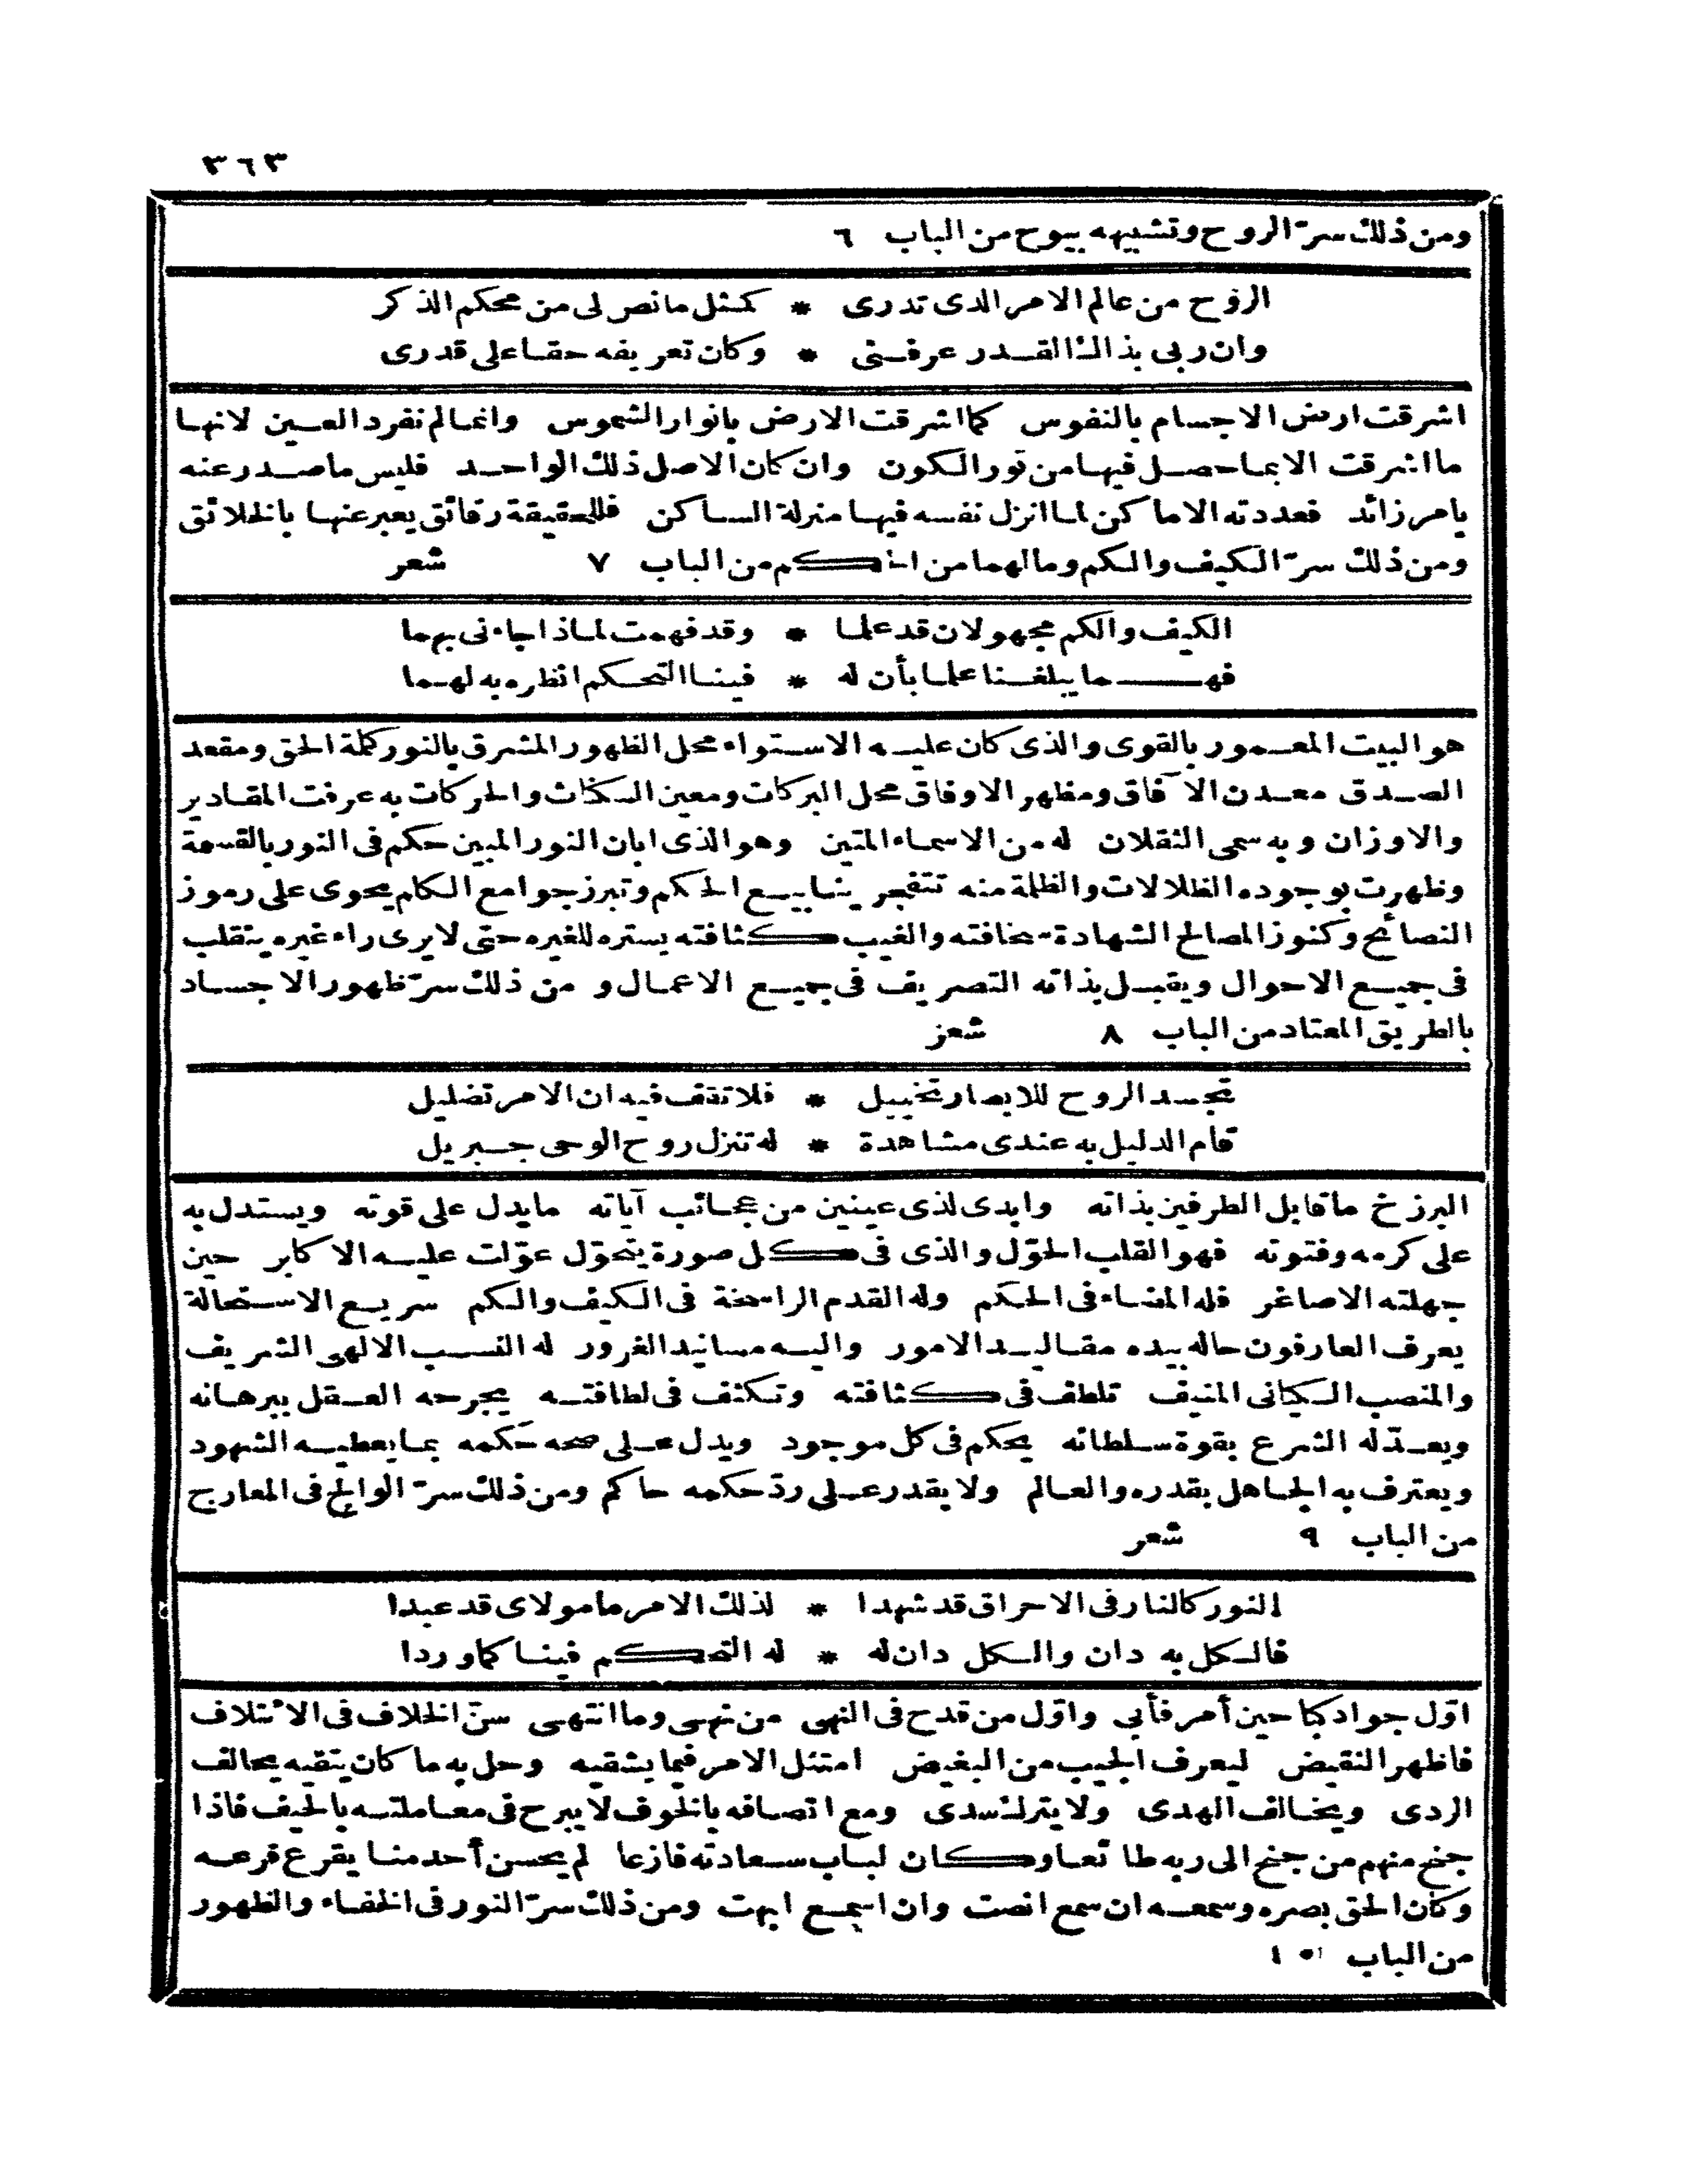 ٣٦٣
ومن ذلك سرّ الروح وتشبيهه بيوح من الباب ٦
الروح من عالم الامر الذى تدرى * كمثل ما نص لى من محكم الذكر
وان ربى بذاك القدر عرفنى * وكان تعريفه حقا على قدرى
اشرقت ارض الاجسام بالنفوس كما اشرقت الارض بانوار الشموس وانما لم نفرد العين لانها
ما اشرقت الا بما حصل فيها من نور الكون وان كان الاصل ذلك الواحد فليس ما صدر عنه
بامر زائد فعددته الاماكن لما انزل نفسه فيها منزلة الساكن فللحقيقة رقائق يعبر عنها بالخلائق
ومن ذلك سرّ الكيف والكم وما لهما من الحكم من الباب ٧ شعر
الكيف والكم مجهولان قد علما * وقد فهمت لماذا جاءنى بهما
فهما يبلغنا علما بأن له * فينا التحكم انظره به لهما
هو البيت المعمور بالقوى والذى كان عليه الاستواء محل الظهور المشرق بالنور كلمة الحق ومقعد
الصدق معدن الآفاق ومظهر الاوفاق محل البركات ومعين السكنات والحركات به عرفت المقادير
والاوزان وبه سمى الثقلان له من الاسماء المتين وهو الذى ابان النور المبين حكم فى النور بالقسمة
وظهرت بوجوده الظلالات والظلمة منه تتفجر ينابيع الحكم وتبرز جوامع الكلم يحوى على رموز
النصائح وكنوز المصالح الشهادة سخافته والغيب كثافته يستره للغيره حتى لا يرى راء غيره يتقلب
فى جميع الاحوال ويقبل بذاته التصريف فى جميع الاعمال و من ذلك سرّ ظهور الاجساد
بالطريق المعتاد من الباب ٨ شعر
تجسد الروح للابصار تخييل * فلا تقف فيه ان الامر تضليل
قام الدليل به عندى مشاهدة * له تنزل روح الوحى جبريل
البرزخ ما قابل الطرفين بذاته وابدى لذى عينين من عجائب آياته ما يدل على قوته ويستدل به
على كرمه وفتوته فهو القلب الحوّل والذى فى كل صورة يتحوّل عوّلت عليه الاكابر حين
جهلته الاصاغر فله المضاء فى الحكم وله القدم الراسخة فى الكيف والكم سريع الاستحالة
يعرف العارفون حاله بيده مقاليد الامور واليه مسانيد الغرور له النسب الالهى الشريف
والمنصب الكيانى المنيف تلطف فى كثافته وتكثف فى لطافته يجرحه العقل ببرهانه
ويعدّله الشرع بقوة سلطانه يحكم فى كل موجود ويدل على صحه حكمه بما يعطيه الشهود
ويعترف به الجاهل بقدره والعالم ولا يقدر على ردّ حكمه حاكم ومن ذلك سرّ الوالج فى المعارج
من الباب ٩ شعر
النور كالنار فى الاحراق قد شهدا * لذلك الامر ما مولاى قد عبدا
فالكل به دان والكل دان له * له التحكم فينا كما وردا
اوّل جواد كبا حين أمر فأبى واوّل من قدح فى النهى من نهى وما انتهى سنّ الخلاف فى الائتلاف
فاظهر النقيض ليعرف الحبيب من البغيض امتثل الامر فيما يشقيه وحل به ما كان يتقيه يحالف
الردى ويخالف الهدى ولا يترك سدى ومع اتصافه بالخوف لا يبرح فى معاملته بالحيف فاذا
جنح منهم من جنح الى ربه طائعا وكان لباب سعادته قارعا لم يحسن أحد منا يقرع قرعه
وكان الحق بصره وسمعه ان سمع انصت وان اسمع ابهت ومن ذلك سرّ النور فى الخفاء والظهور
من الباب ١٠